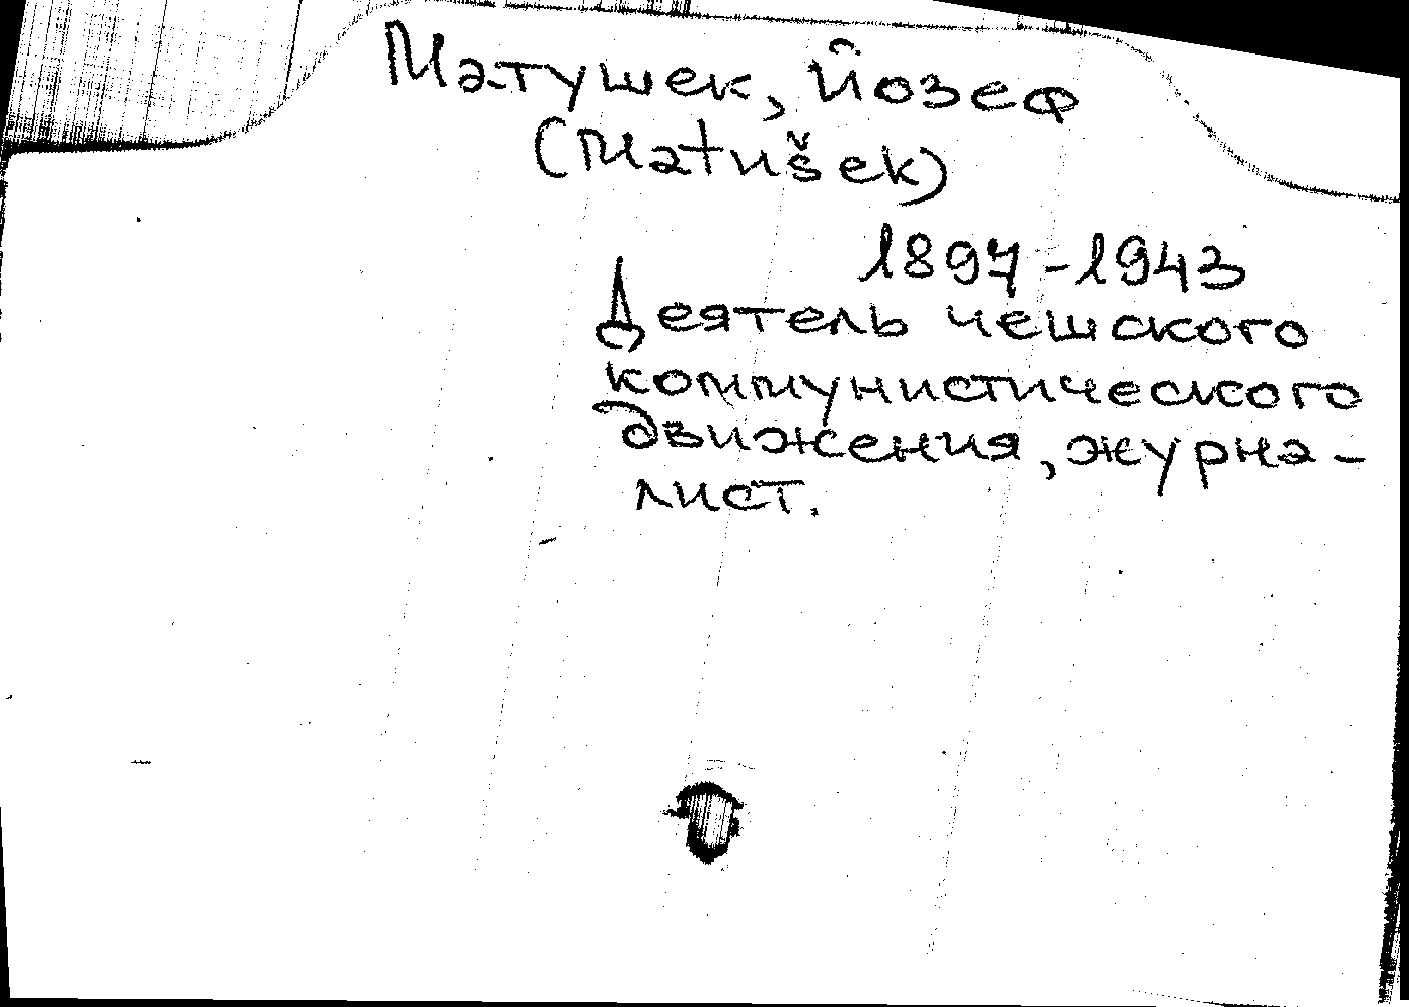 Матушек, Йозеф
(Matušek)
1897-1943
Деятель чешского
коммунистического
движения, журна-
лист.